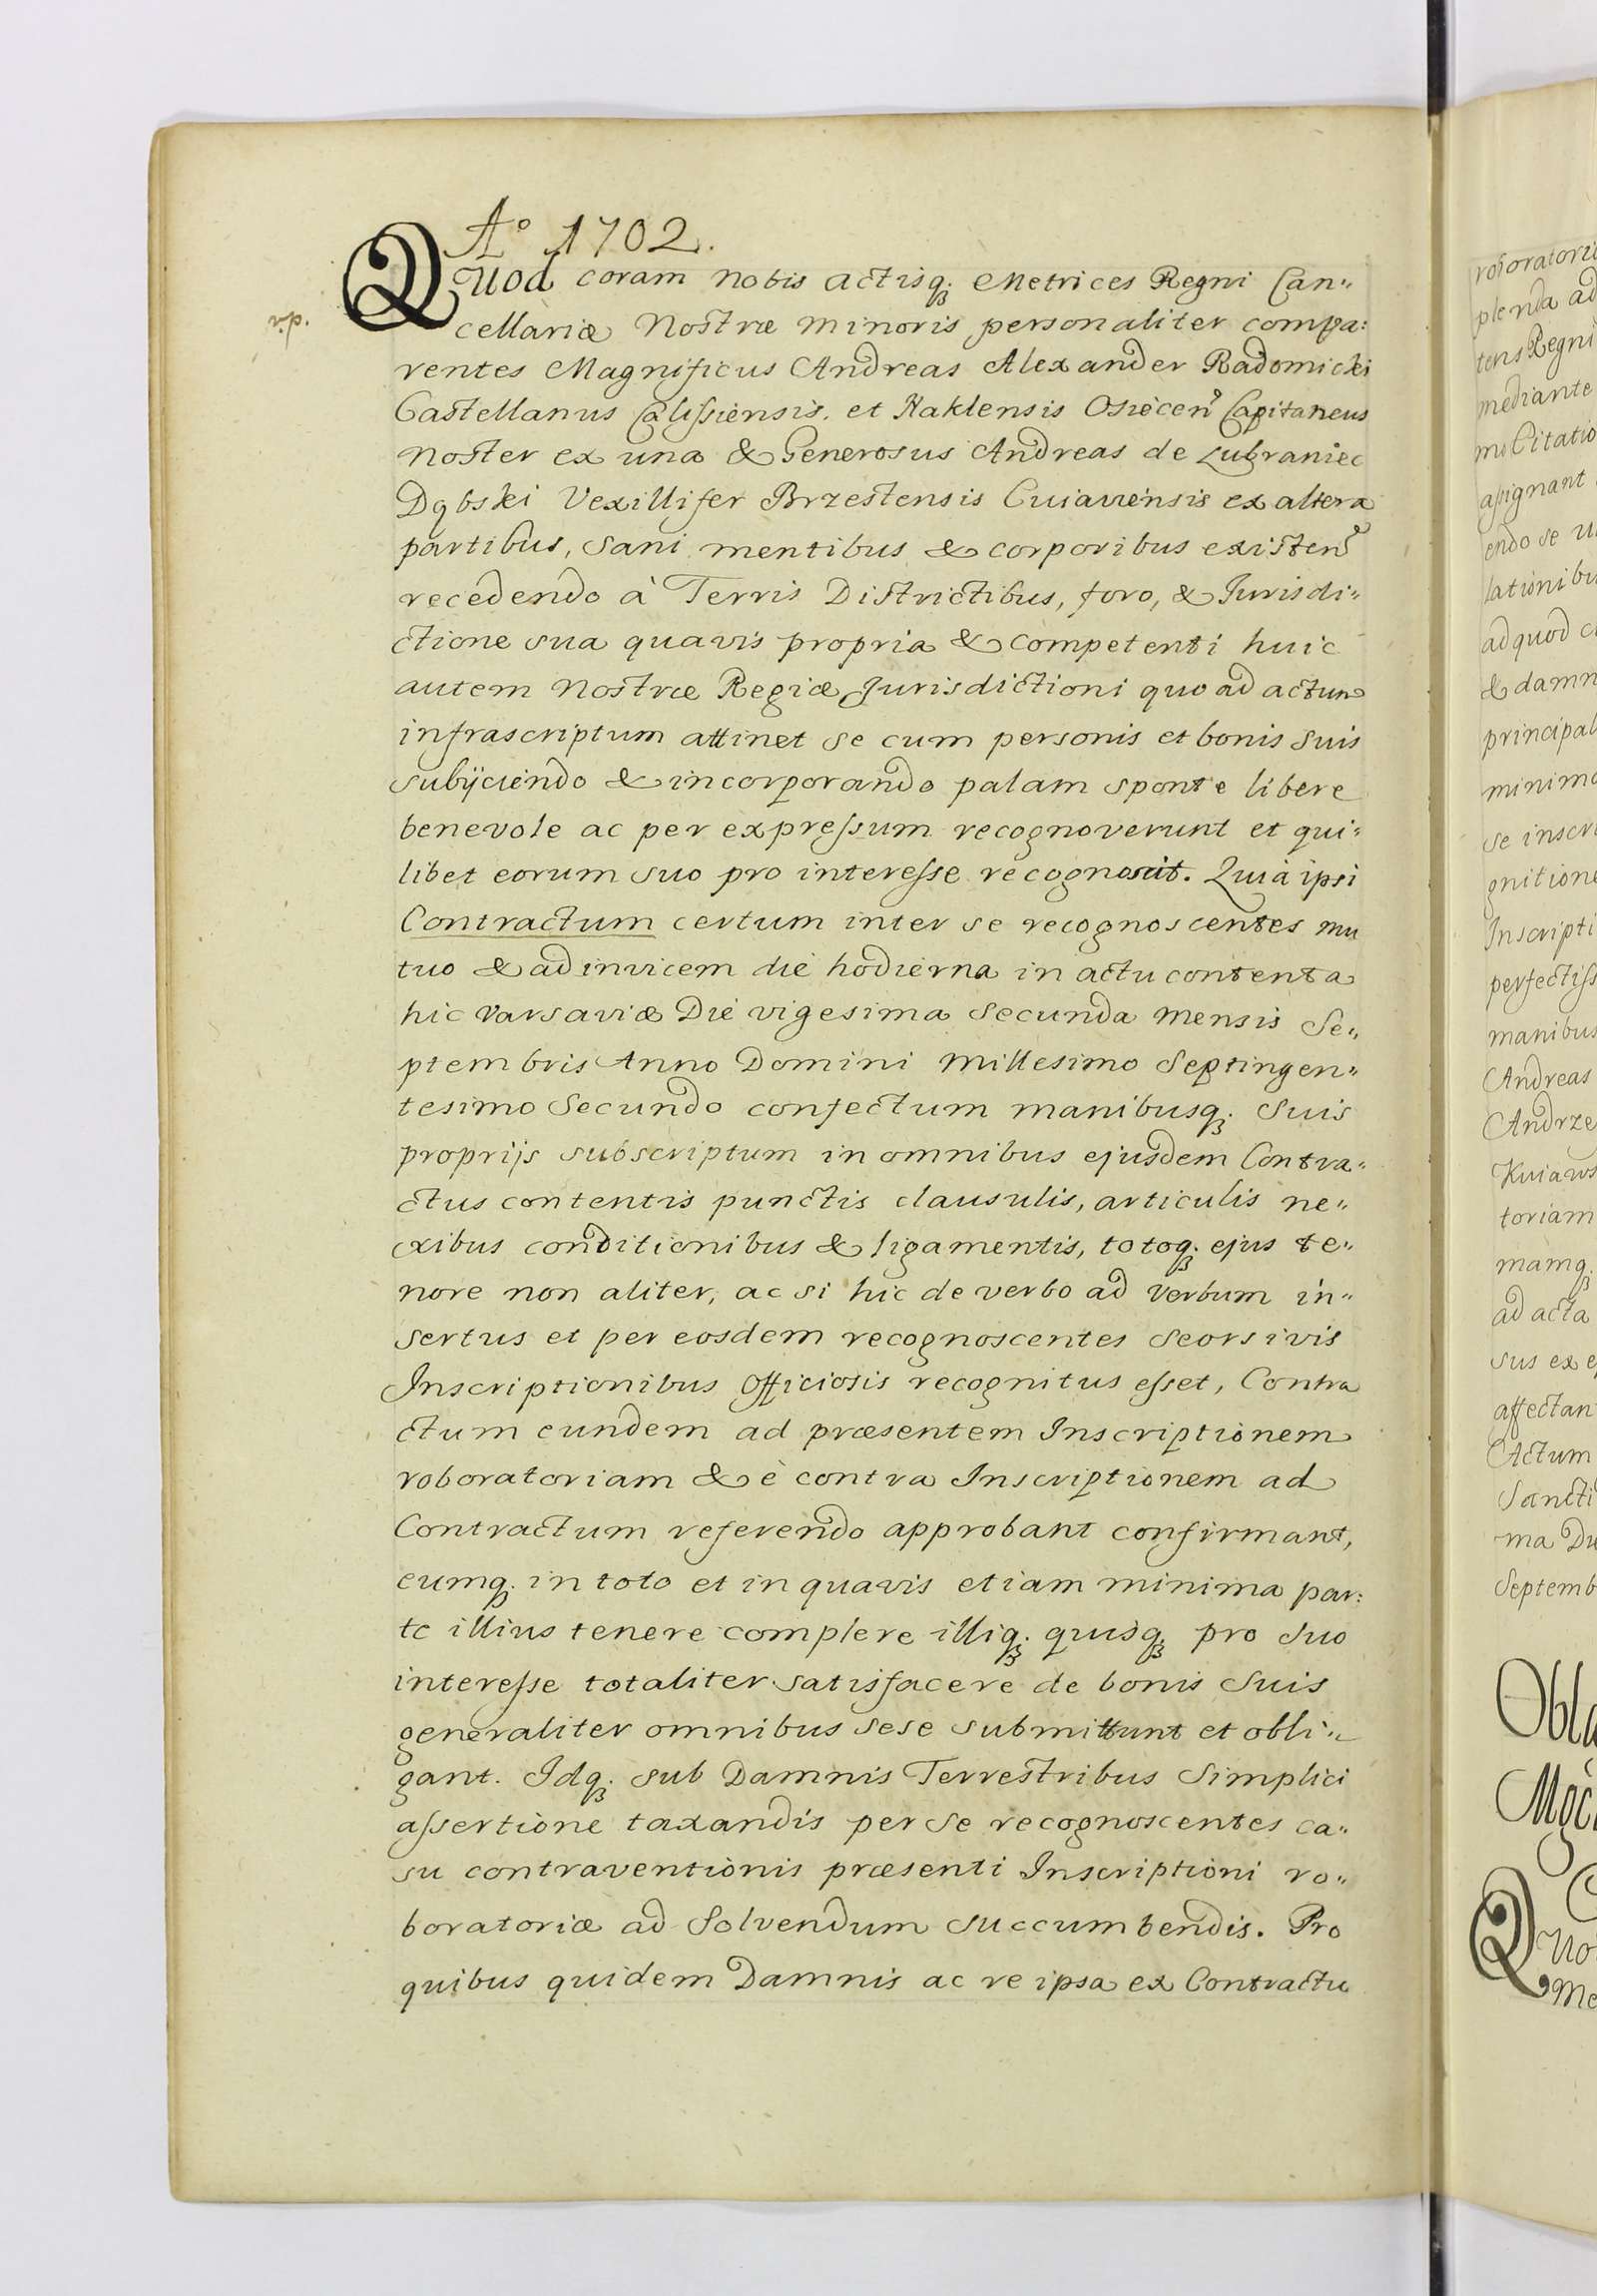 Aº 1702.
QUod coram nobis actisq; Metrices Regni Can=
v.p.
cellariæ Nostræ minoris personaliter compa:
rentes Magnificus Andreas Alexander Radomicki
Castellanus Calissiensis. et Naklensis Osiecen̄ Capitaneus
noster ex una & Generosus Andreas de Lubraniec
Dąbski Vexillifer Brzestensis Cuiaviensis ex altera
partibus, sani mentibus & corporibus existen̄
recedendo à Terris Districtibus, foro, & Jurisdi=
ctione sua quavis propria & competenti huic
autem nostræ Regiæ Jurisdictioni quo ad actum
infrascriptum attinet se cum personis et bonis suis
subijciendo & incorporando palam sponte libere
benevole ac per expressum recognoverunt et qui=
libet eorum suo pro interesse recognovit. Quia ipsi
Contractum certum inter se recognoscentes mu
tuo & ad invicem die hodierna in actu contenta
hic Varsaviæ Die vigesima secunda mensis Se=
ptembris Anno Domini Millesimo Septingen=
tesimo Secundo confectum manibusq; suis
proprijs subscriptum in omnibus ejusdem Contra=
ctus contentis punctis clausulis, articulis ne=
xibus conditionibus & ligamentis, totoq; ejus te=
nore non aliter, ac si hic de verbo ad verbum in=
sertus et per eosdem recognoscentes seorsivis
Inscriptionibus Officiosis recognitus esset, Contra
ctum eundem ad præsentem Inscriptionem
roboratoriam & è contra Inscriptionem ad
Contractum referendo approbant confirmant,
eumq; in toto et in quavis etiam minima par:
te illius tenere complere illiq; quisq; pro suo
interesse totaliter satisfacere de bonis suis
generaliter omnibus sese submittunt et obli=
gant. Idq; sub Damnis Terrestribus simplici
assertione taxandis per se recognoscentes ca=
su contraventionis præsenti Inscriptioni ro=
boratoriæ ad solvendum succumbendis. Pro
quibus quidem Damnis ac re ipsa ex Contractu
roboratori
plenda ad
tens Regni
mediante
mi Citatio
assignant
endo se
lationibu
ad quod
& damn
principal
minima
se inscri
gnitione
Inscripti
perfectiss
manibus
Andreas
Andrze
Kuiaws
toriam
mamq;
ad acta
sus ex e
affectan
Actum
Sancti
ma Du
Septemb
Obla